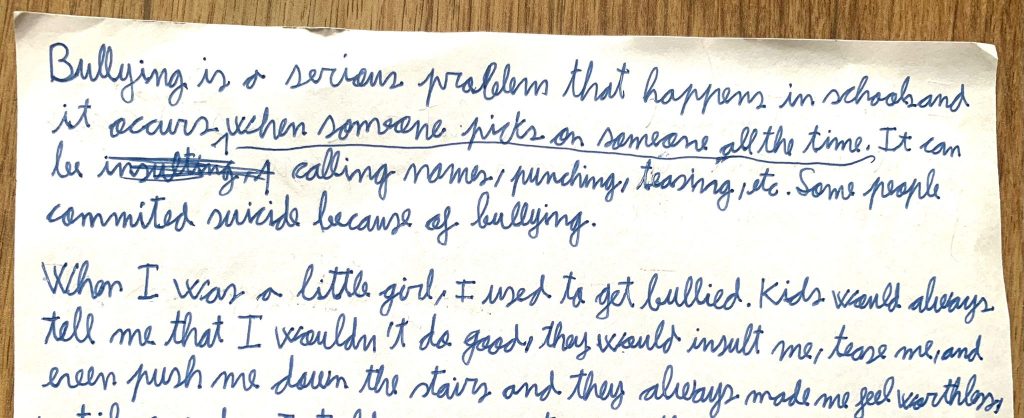 Bullying is a serious problem that happens in schools and
it occurs, when someone picks on someone all the time. It can
be insulting, calling names, punching, teasing, etc. Some people
commited suicide because of bullying.
When I was a little girl, I used to get bullied. Kids would always
tell me that I wouldn't do good, they would insult me, tease me, and
even push me down the stairs and they always made me feel worthless,